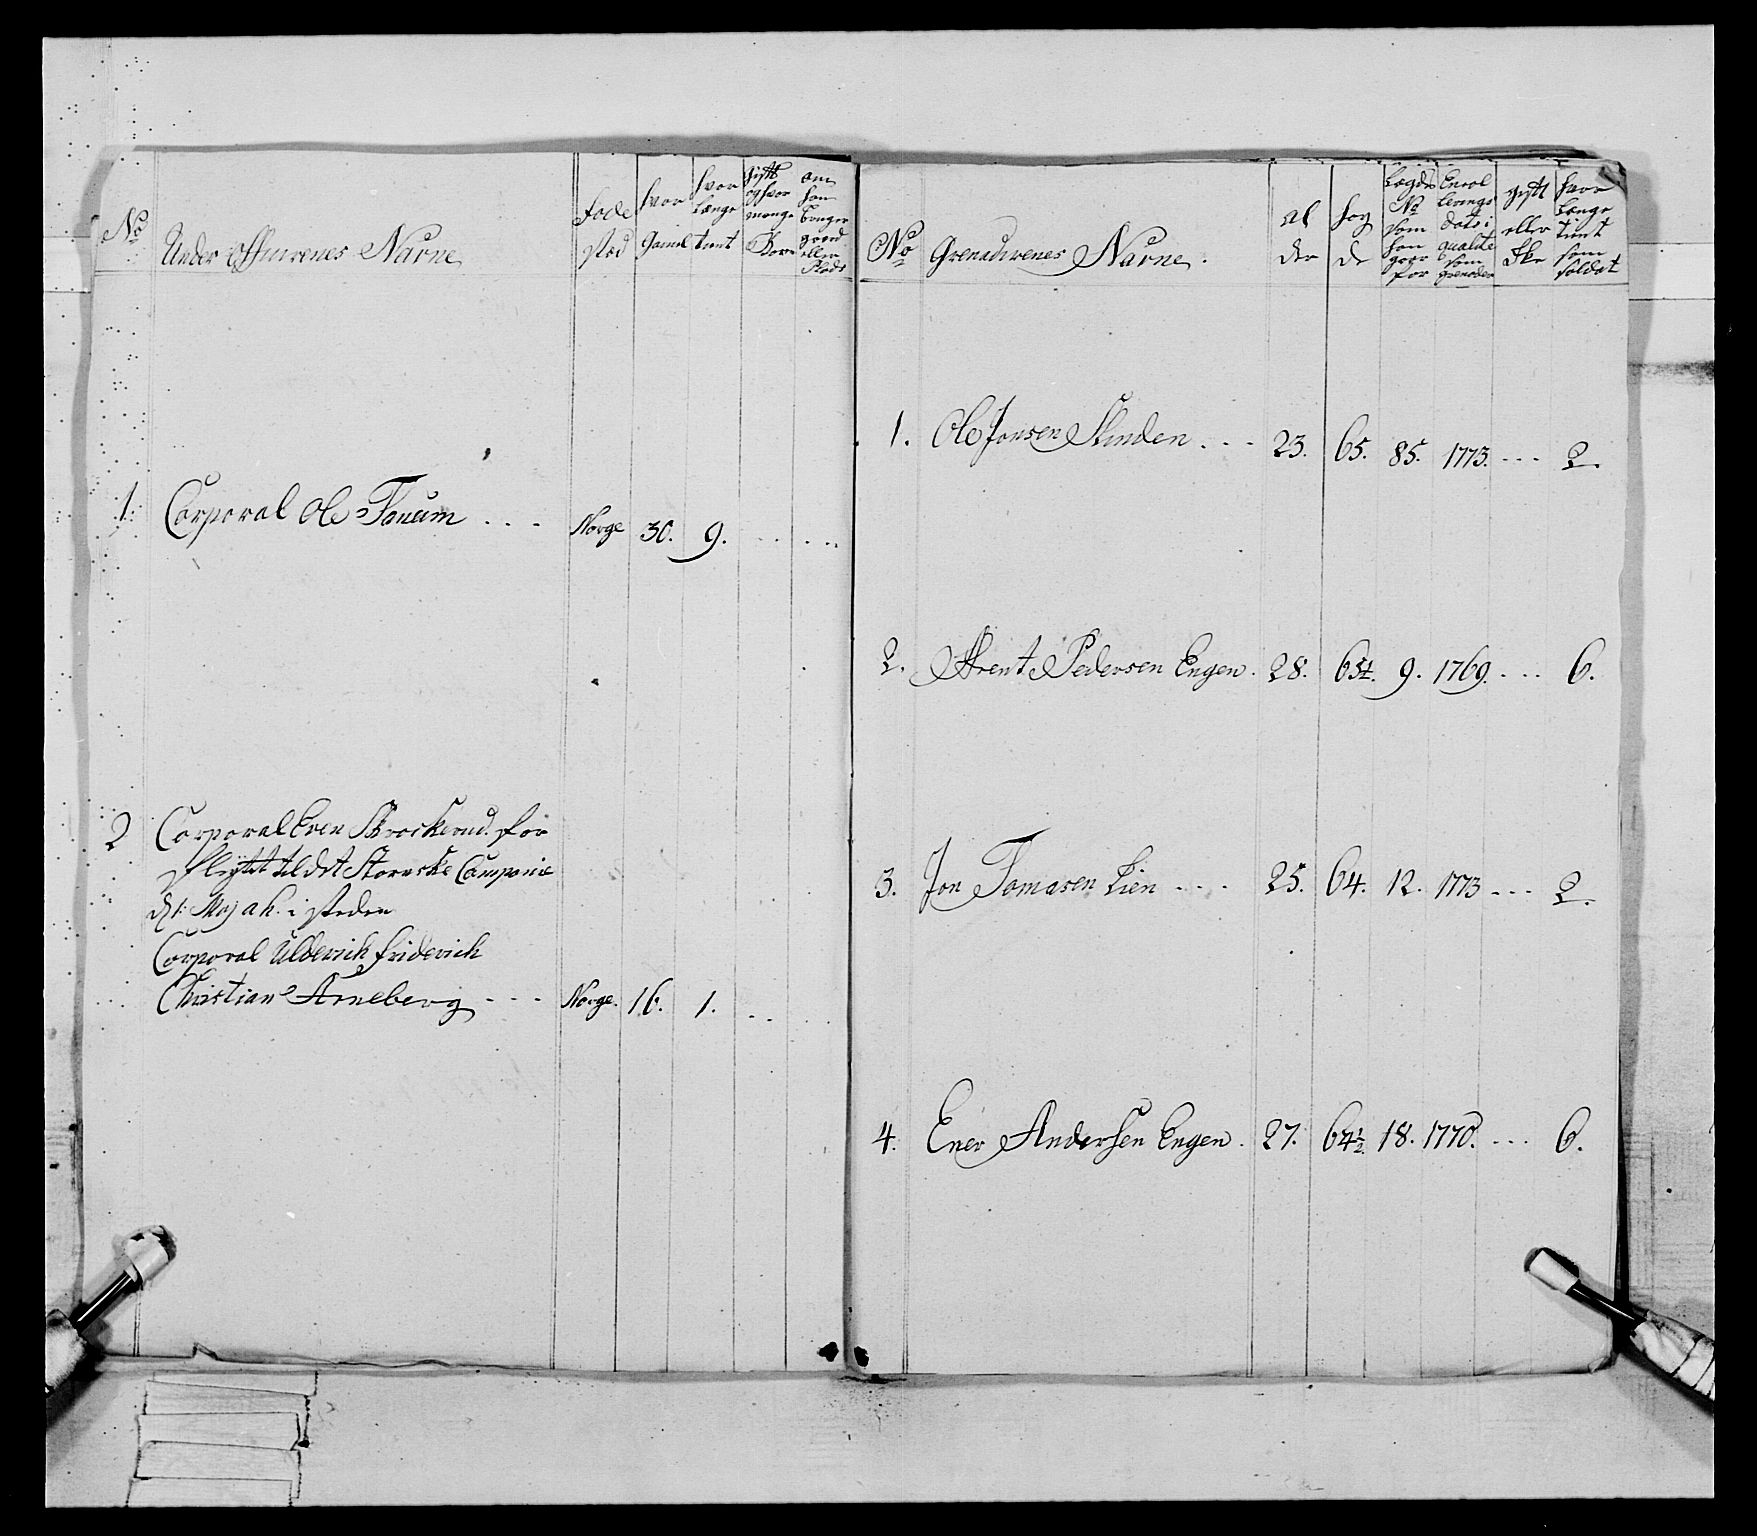 No
Under Officirenes Nafne
Føde sted
hvor Gamel
hvor længe tient
gift og hvor mange Børn
om han bruger gaard eller Plads
1. Corporal Ole Fonum . . . Norge 30. 9. . . . . .
2 Corporal Even Brockerud. for
flyttet til det Storeuske Companie
d 1: Maj a h. i steden
Corporal Ulderich Friderich
Christian Arneberg . . . Norge. 16. 1. . . .
No
Grenaderenes Nafne.
al der
høy de
Lægds No som han giør for
Enrol lerings dato i qualite som grenader
gift eller Ike
hvor længe tient som soldat
1. Ole Jonsen Slinden . . . 23. 65. 85. 1773. . . . 2.
2. Arent Pedersen Engen. 28. 65¼. 9. 1769. . . . 6.
3. Jon Tomasen Lien . . . 25. 64. 12. 1773 . . . 2.
4. Ener Andersen Engen. 27. 64½. 18. 1770. . . . 6.